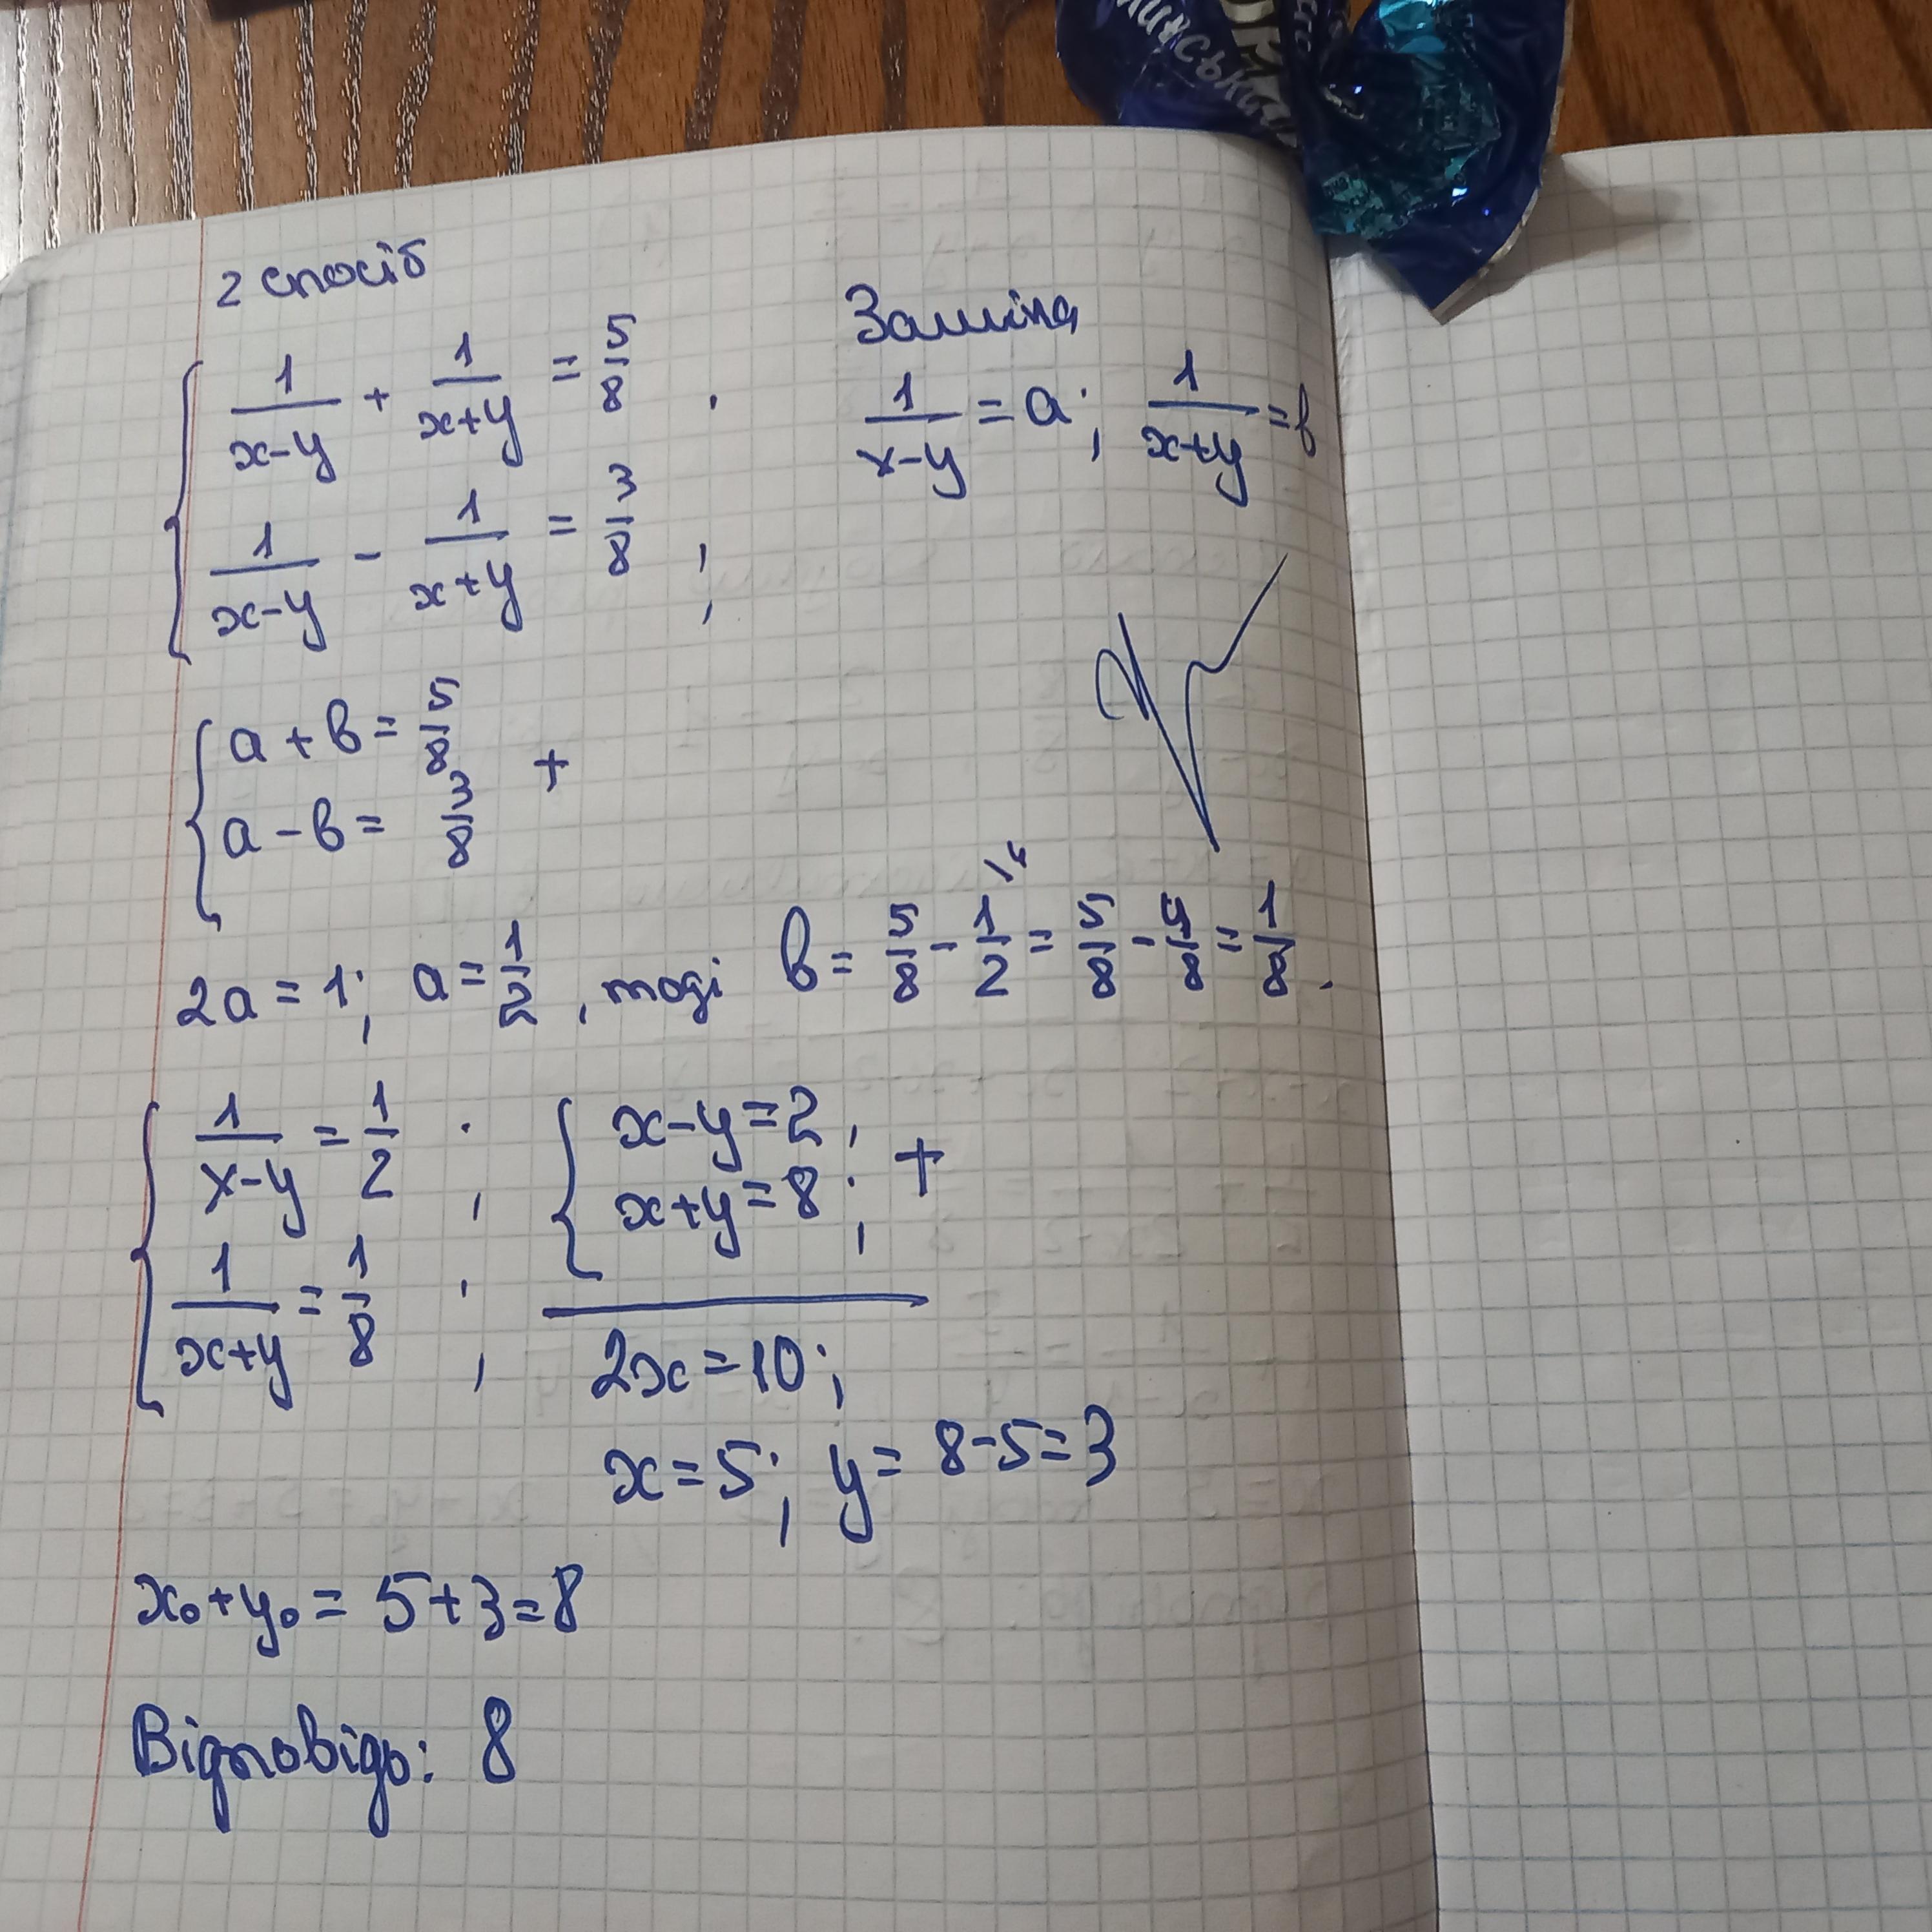 2 спосіб
Заміна
1/(x-y) + 1/(x+y) = 5/8 ;
1/(x-y) - 1/(x+y) = 3/8 ;
1/(x-y) = a; 1/(x+y) = b
a + b = 5/8
a - b = 3/8
+
2a = 1; a = 1/2, тоді b = 5/8 - 1/2 \4 = 5/8 - 4/8 = 1/8.
1/(x-y) = 1/2 ;
1/(x+y) = 1/8 ;
x-y=2,
x+y=8; +
2x=10;
x=5; y= 8-5=3
x₀+y₀= 5+3=8
Відповідь: 8